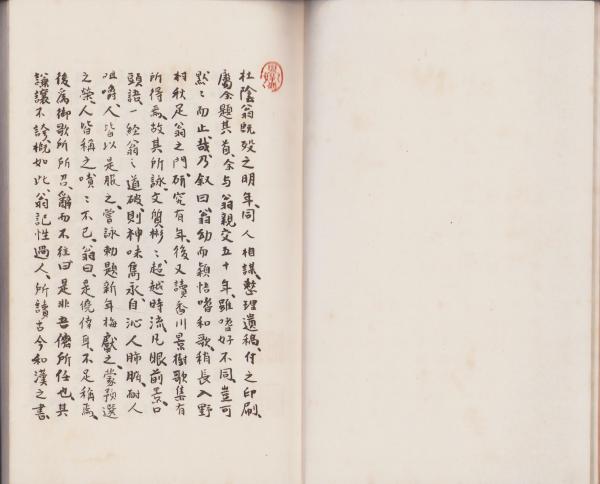 杜陰翁既歿之明年、同人相謀、整理遺稿、付之印刷、
屬余題其首、余与翁親交五十年、雖嗜好不同、豈可
默〻而止哉、乃叙曰、翁幼而穎悟、嗜和歌、稍長入野
村秋足翁之門、研究有年、後又讀香川景樹歌集有
所得焉、故其所詠、文質彬〻、超越時流、凡眼前景、口
頭語、一経翁〻道破、則神味雋永、自沁人肺腑、耐人
咀嚼、人皆以是服之、嘗詠勅題新年梅獻之、蒙預選
之榮、人皆稱之嘖〻不已、翁曰、是僥倖耳、不足稱焉、
後為御歌所所召、辭而不往曰、是非吾儕所任也、其
謙讓不誇、概如此、翁記性過人、所讀古今和漢之書、